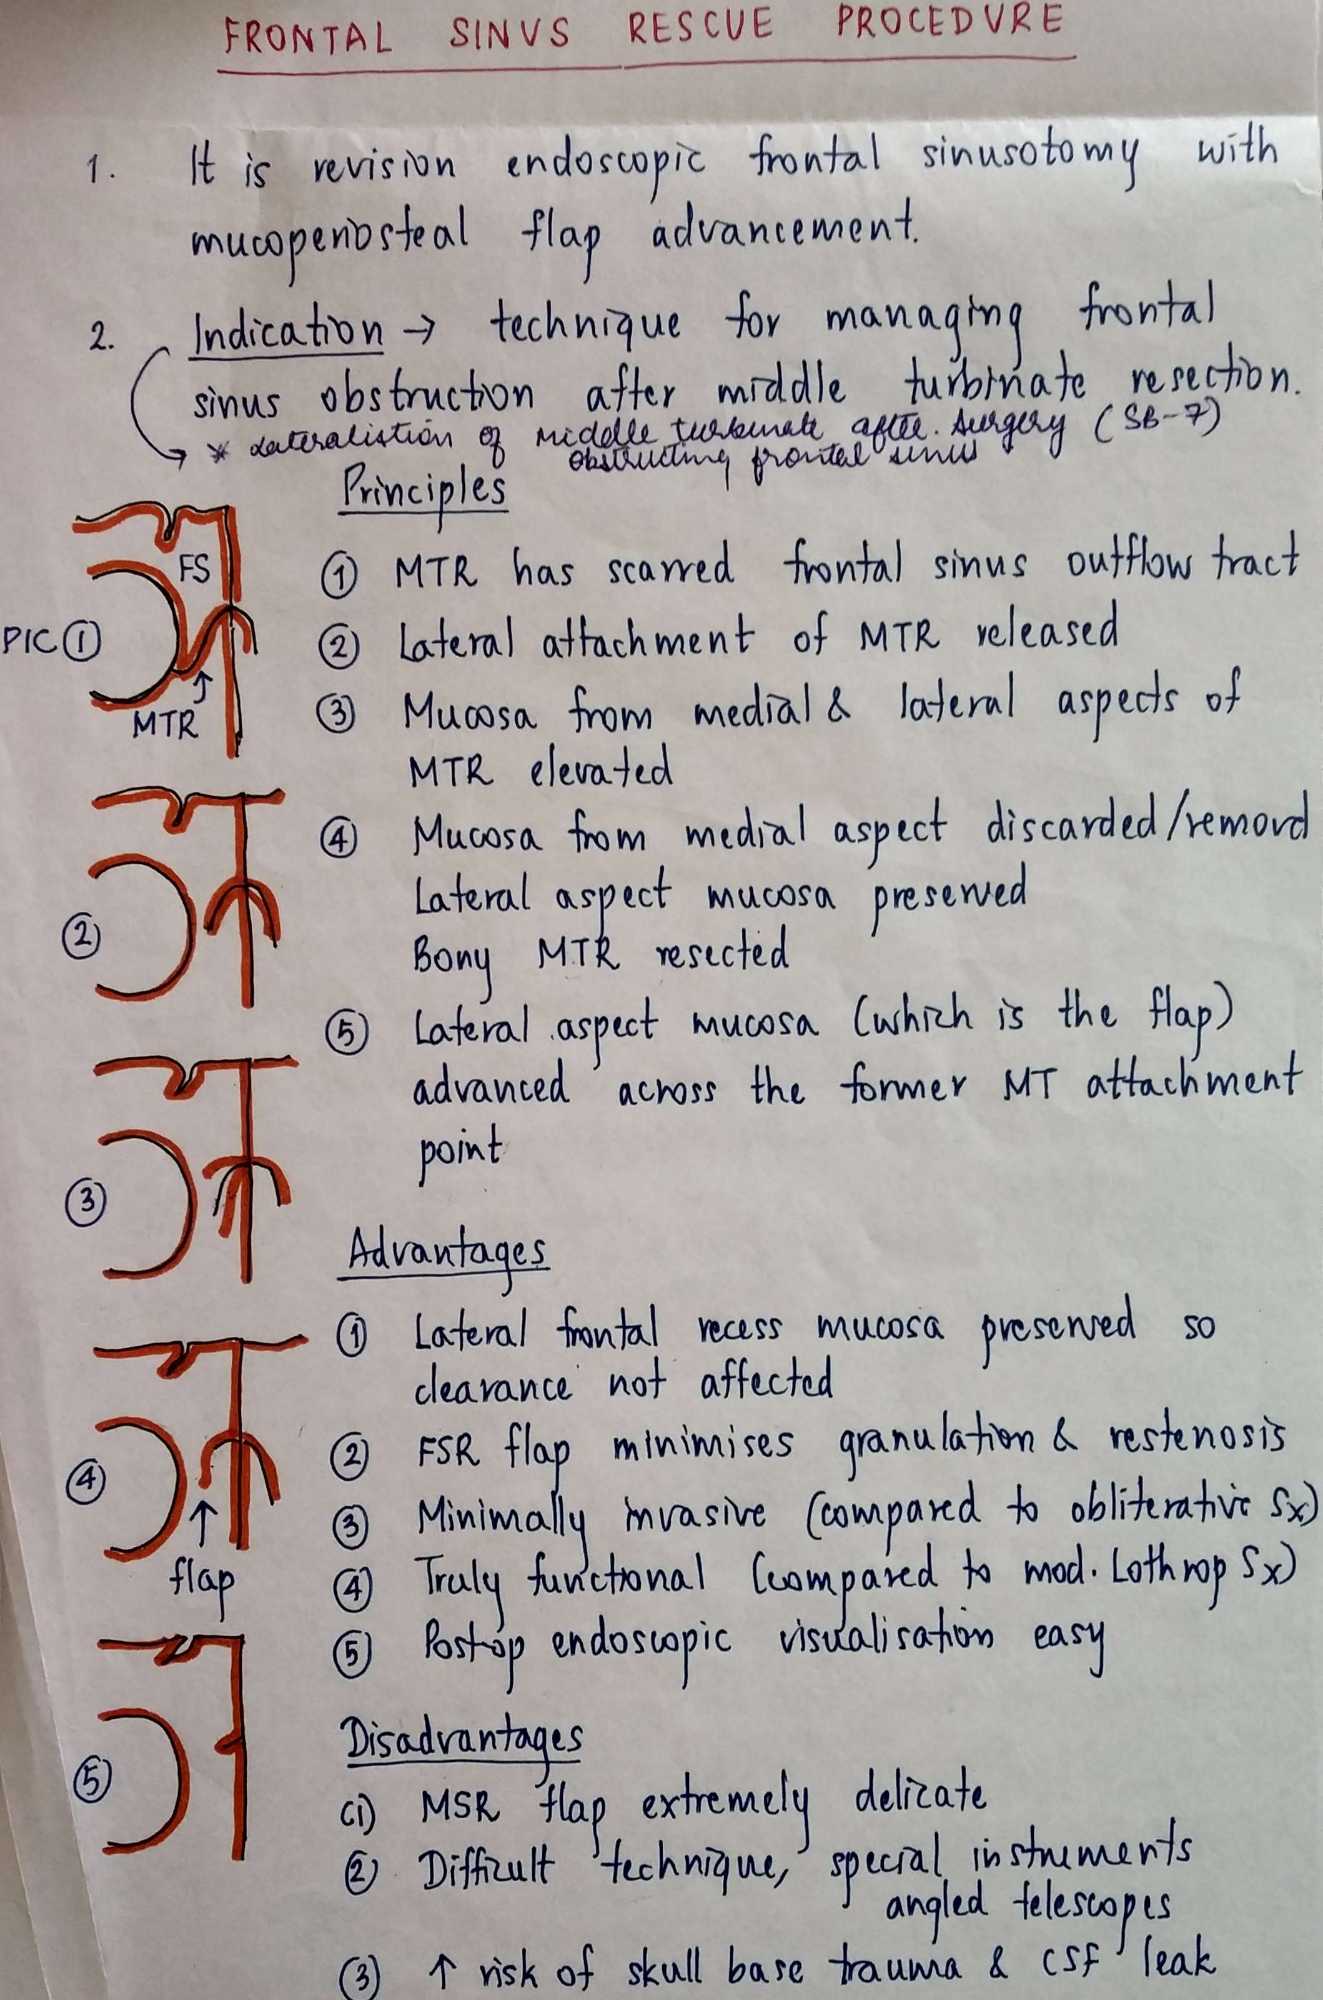 FRONTAL SINUS RESCUE PROCEDURE
1. It is revision endoscopic frontal sinusotomy with
mucoperiosteal flap advancement.
2. Indication → technique for managing frontal
sinus obstruction after middle turbinate resection.
* Lateralistion of middle turbinate after surgery (SB-7)
obstructing frontal sinus
Principles
① MTR has scarred frontal sinus outflow tract
② Lateral attachment of MTR released
③ Mucosa from medial & lateral aspects of
MTR elevated
④ Mucosa from medial aspect discarded/removd
Lateral aspect mucosa preserved
Bony MTR resected
⑤ Lateral aspect mucosa (which is the flap)
advanced across the former MT attachment
point
FS
PIC ①
MTR
②
③
④
flap
⑤
Advantages
① Lateral frontal recess mucosa preserved so
clearance not affected
② FSR flap minimises granulation & restenosis
③ Minimally invasive (compared to obliterative Sx)
④ Truly functional (compared to mod. Lothrop Sx)
⑤ Post-op endoscopic visualisation easy
Disadvantages
(1) MSR flap extremely delicate
② Difficult technique, special instruments
angled telescopes
③ ↑ risk of skull base trauma & CSF leak